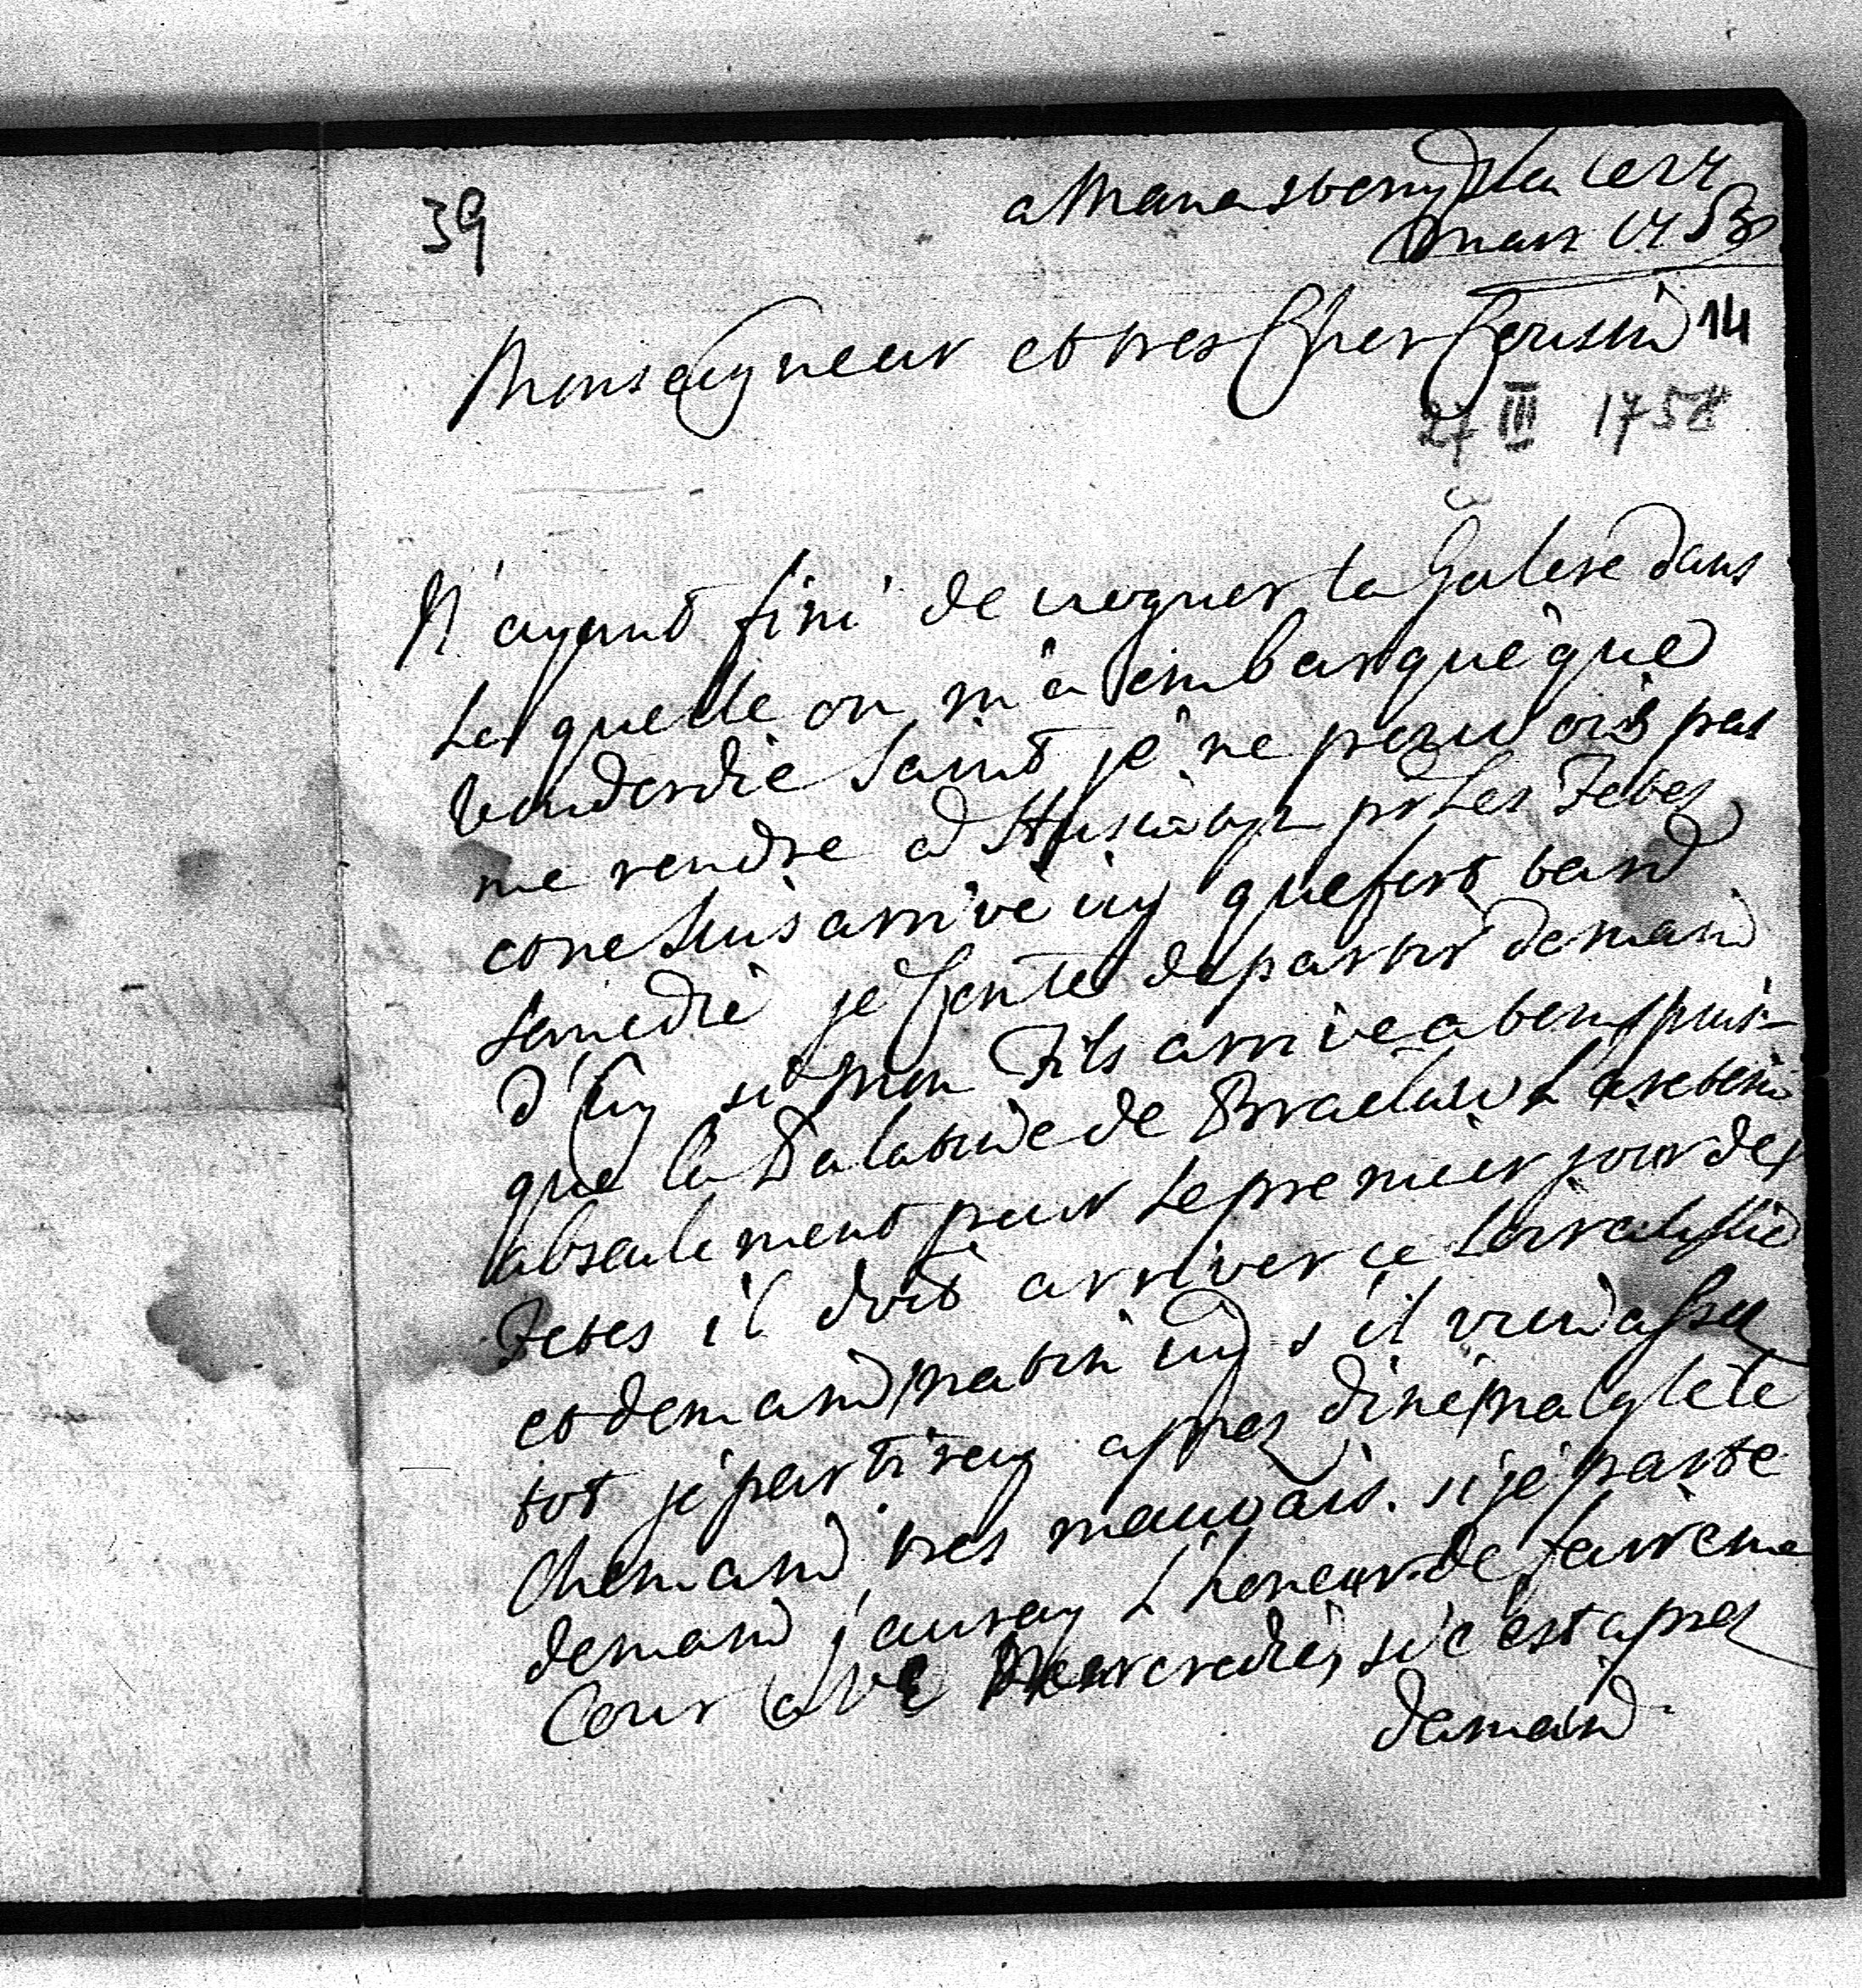 39
a Manasterzyska ce 27
mars 1758
Monseigneur et tres Cher Cousin 14
27 III 1758
N'ayant fini de voguer la Galere dans
la quelle on m'a embarqué que
Venderdie Saint je ne pouvois pas
me rendre a Husiatyn pr Les Fetes
et ne suis arrivé icy que fort tard
samedie je Conte de partir demain
d'icy si mon Fils arrive a tems puis
que la Palatine de Braclaw L'a retenu
absolument pour Le premier jour des
Fetes il doit arriver ce
et demain matin icy s'il vien assez
tot je partiray apres diné malgré le
Chemain tres mauvais. si je parte
demain j'auray L'honeur de faire ma
Cour a V E Mercredie, si c'est apres
demain